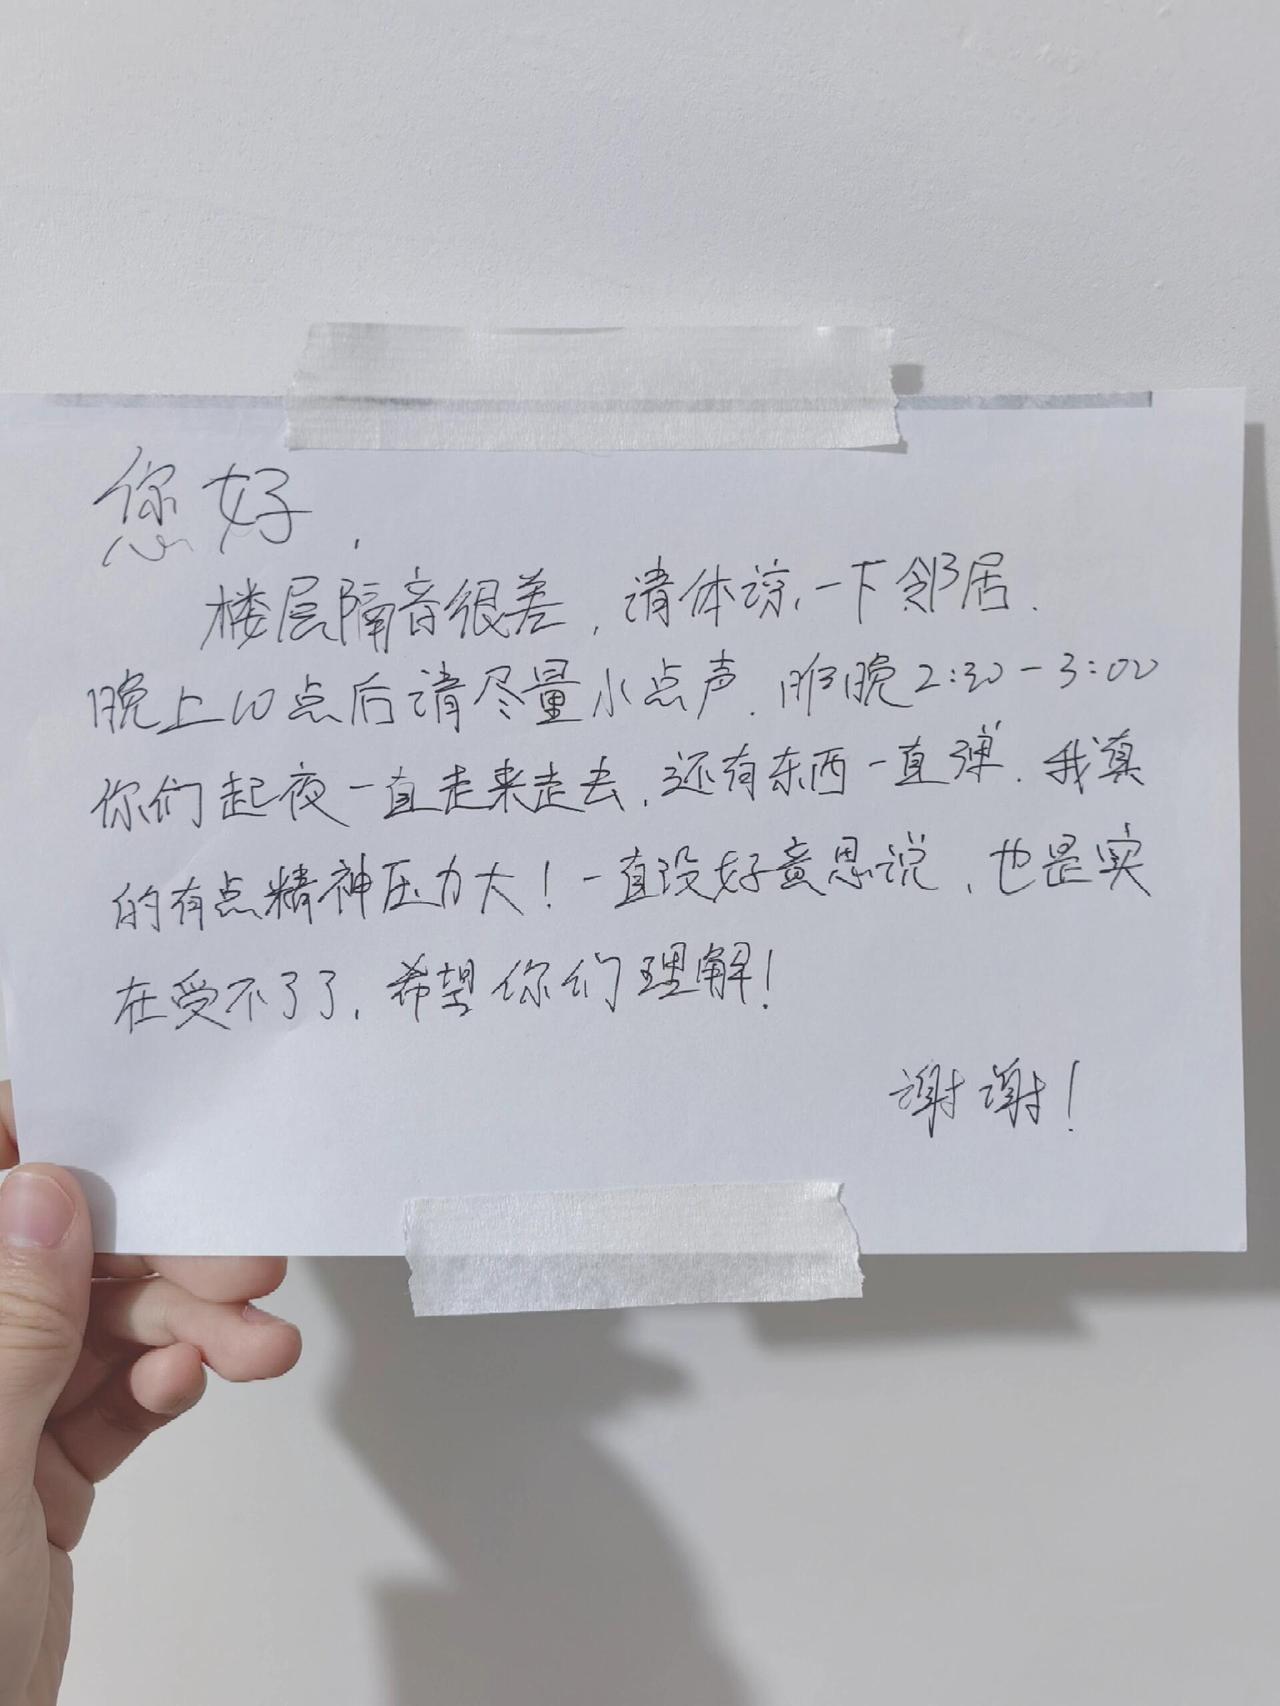 您好,
楼层隔音很差,请体谅一下邻居.
晚上10点后请尽量小点声.昨晚2:30-3:00
你们起夜一直走来走去,还有东西一直弹.我真
的有点精神压力大!一直没好意思说,也是实
在受不了了,希望你们理解!
谢谢!